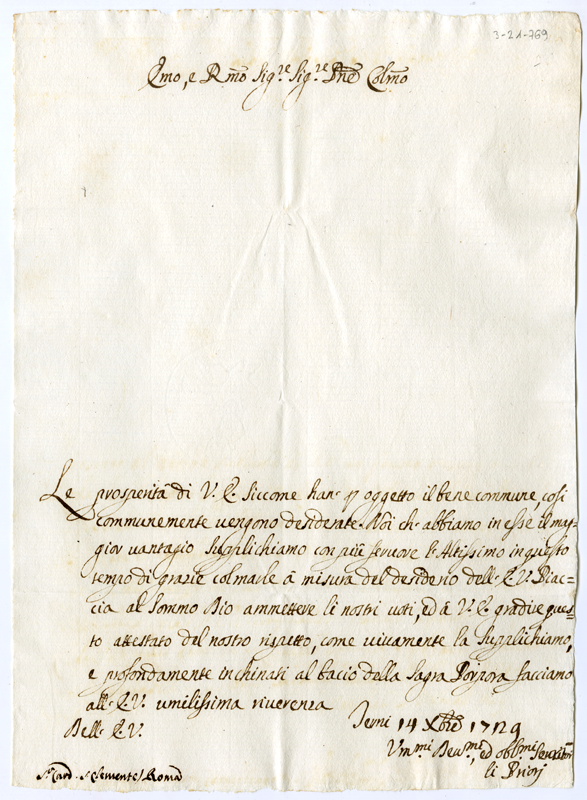 3-21-769
Emo, e Rmo Sig.re Sig.re Pne Colmo
Le prosperità di V. E. siccome han p oggetto il bene commune, così
communemente vengono desiderate. Noi ch. abbiamo in esse il mag=
gior vantagio supplichiamo con più fervore l'Altissimo in questo
tempo di grazie colmarle à misura del desiderio dell. E. V. Piac=
cia al Sommo Dio ammettere li nostri voti, ed à V. E. gradire ques=
to attestato del nostro rispetto, come vivamente la supplichiamo,
e profondamente inchinati al bacio della Sagra Porpora facciamo
all. E. V. umilissima riverenza
Dell. E. V.
Terni 14 Xbre 1729
Vm.mi Dev.mi, ed obb.mi Servitori
li Priori
S. Card. S. Clemente / Roma